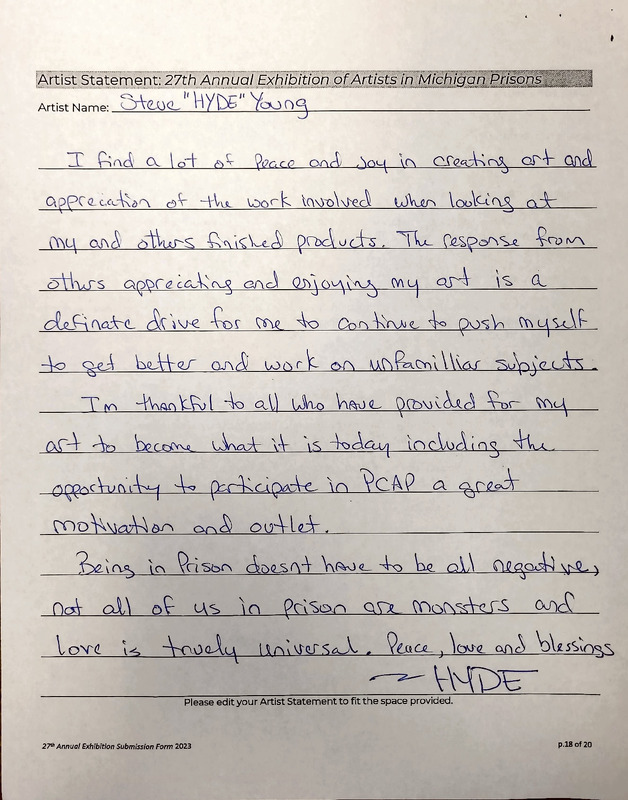 Artist Statement: 27th Annual Exhibition of Artists in Michigan Prisons
Artist Name: Steve "HYDE" Young
I find a lot of Peace and Joy in creating art and
appreciation of the work involved when looking at
my and others finished products. The response from
others appreciating and enjoying my art is a
definate drive for me to continue to push myself
to get better and work on unfamilliar subjects.
I'm thankful to all who have provided for my
art to become what it is today including the
opportunity to participate in PCAP a great
motivation and outlet.
Being in Prison doesnt have to be all negative,
not all of us in prison are monsters and
love is truely universal. Peace, love and blessings
~ HYDE
Please edit your Artist Statement to fit the space provided.
27th Annual Exhibition Submission Form 2023 p.18 of 20